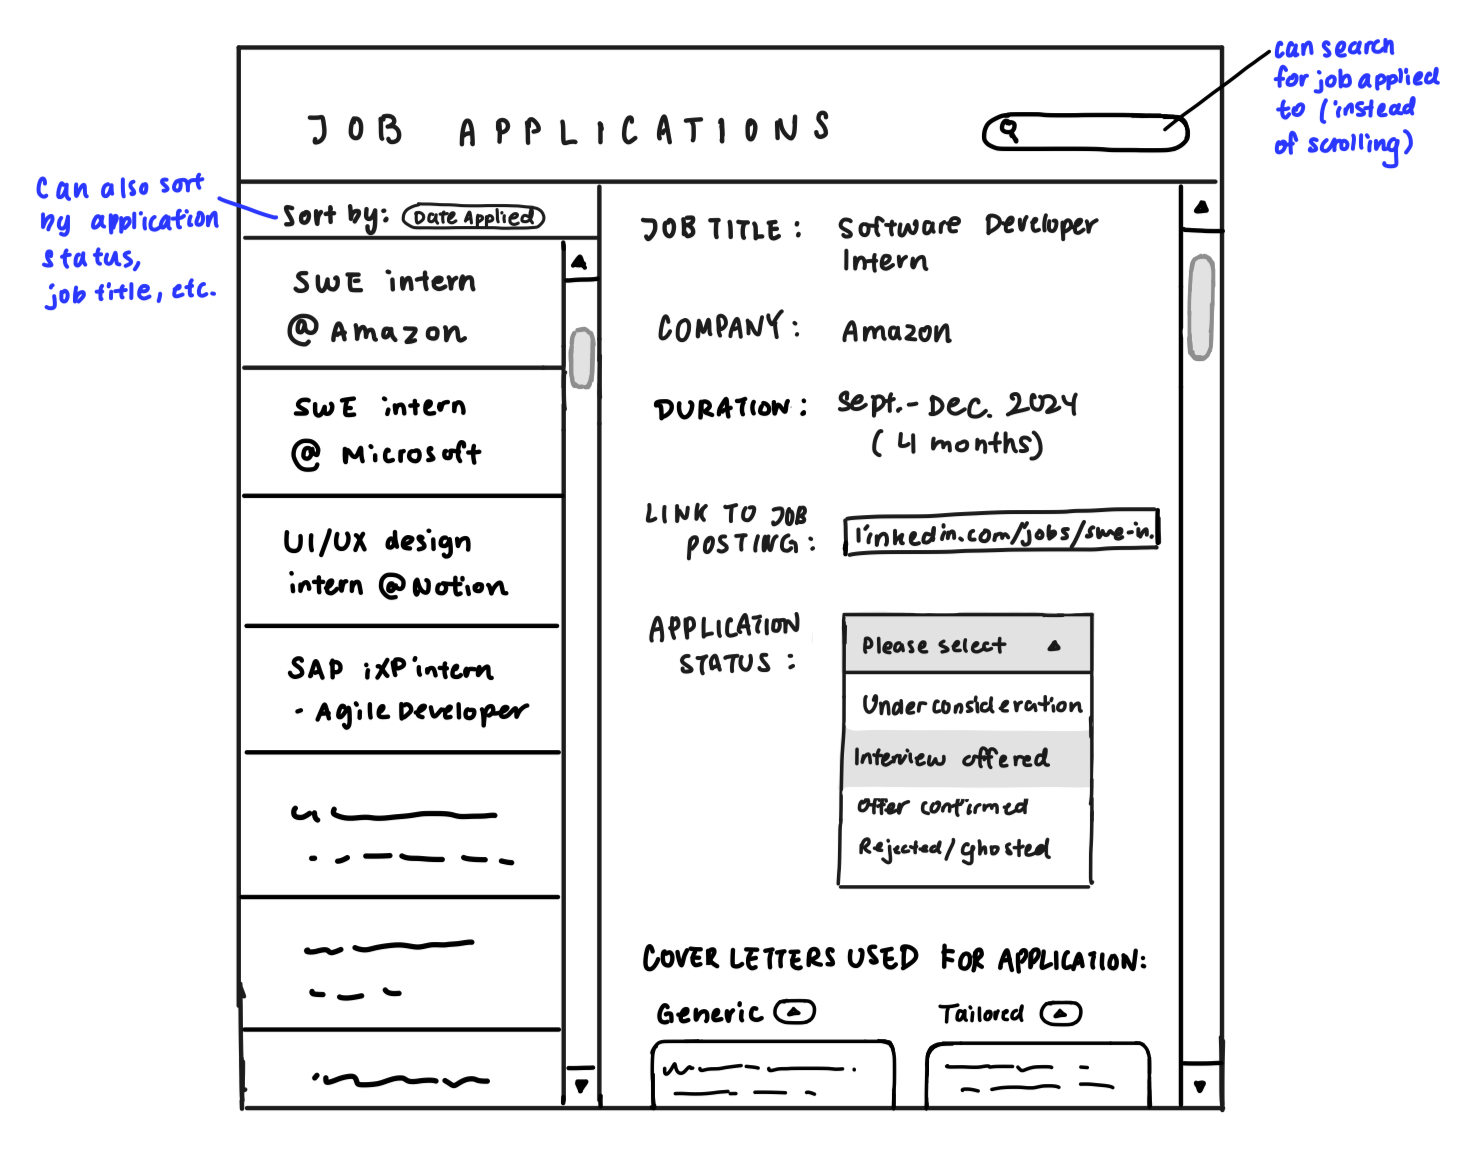 JOB APPLICATIONS
can search
for job applied
to (instead
of scrolling)
Can also sort
by application
status,
job title, etc.
Sort by: Date Applied
SWE intern
@ Amazon
SWE intern
@ Microsoft
UI/UX design
intern @Notion
SAP iXP intern
- Agile Developer
JOB TITLE: Software Developer
Intern
COMPANY: Amazon
DURATION: Sept.- Dec. 2024
(4 months)
LINK TO JOB
POSTING: linkedin.com/jobs/swe-in.
APPLICATION
STATUS:
Please select
Under consideration
Interview offered
Offer confirmed
Rejected/Ghosted
COVER LETTERS USED FOR APPLICATION:
Generic
Tailored